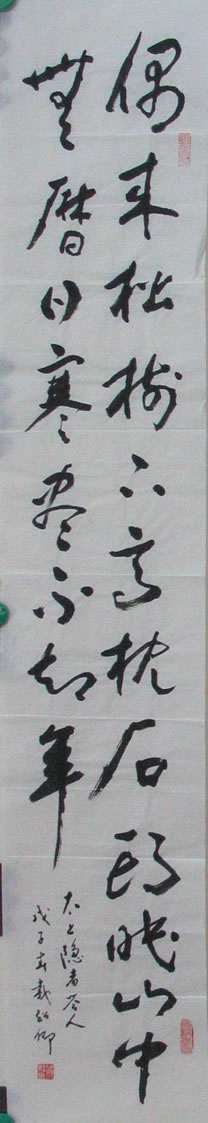 偶来松树下高枕石头眠山中
无历日寒尽不知年
太上隐者答人
戊子春戴